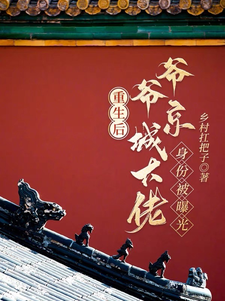 重生后
爷爷京城大佬
身份被曝光
乡村扛把子 著